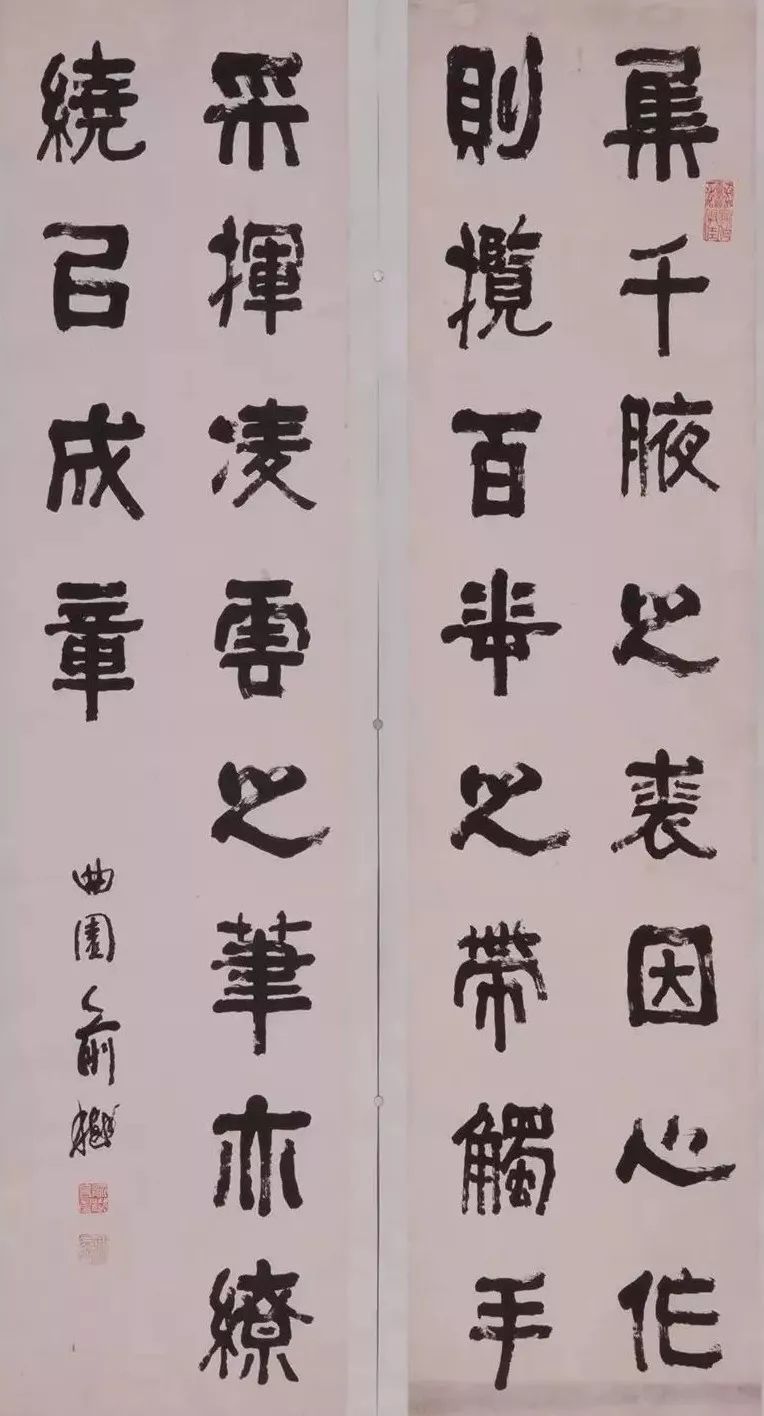 集千腋之裘因心作
則攬百華之帶觸手
采揮凌雲之筆亦繚
繞㠯成章
曲園俞樾